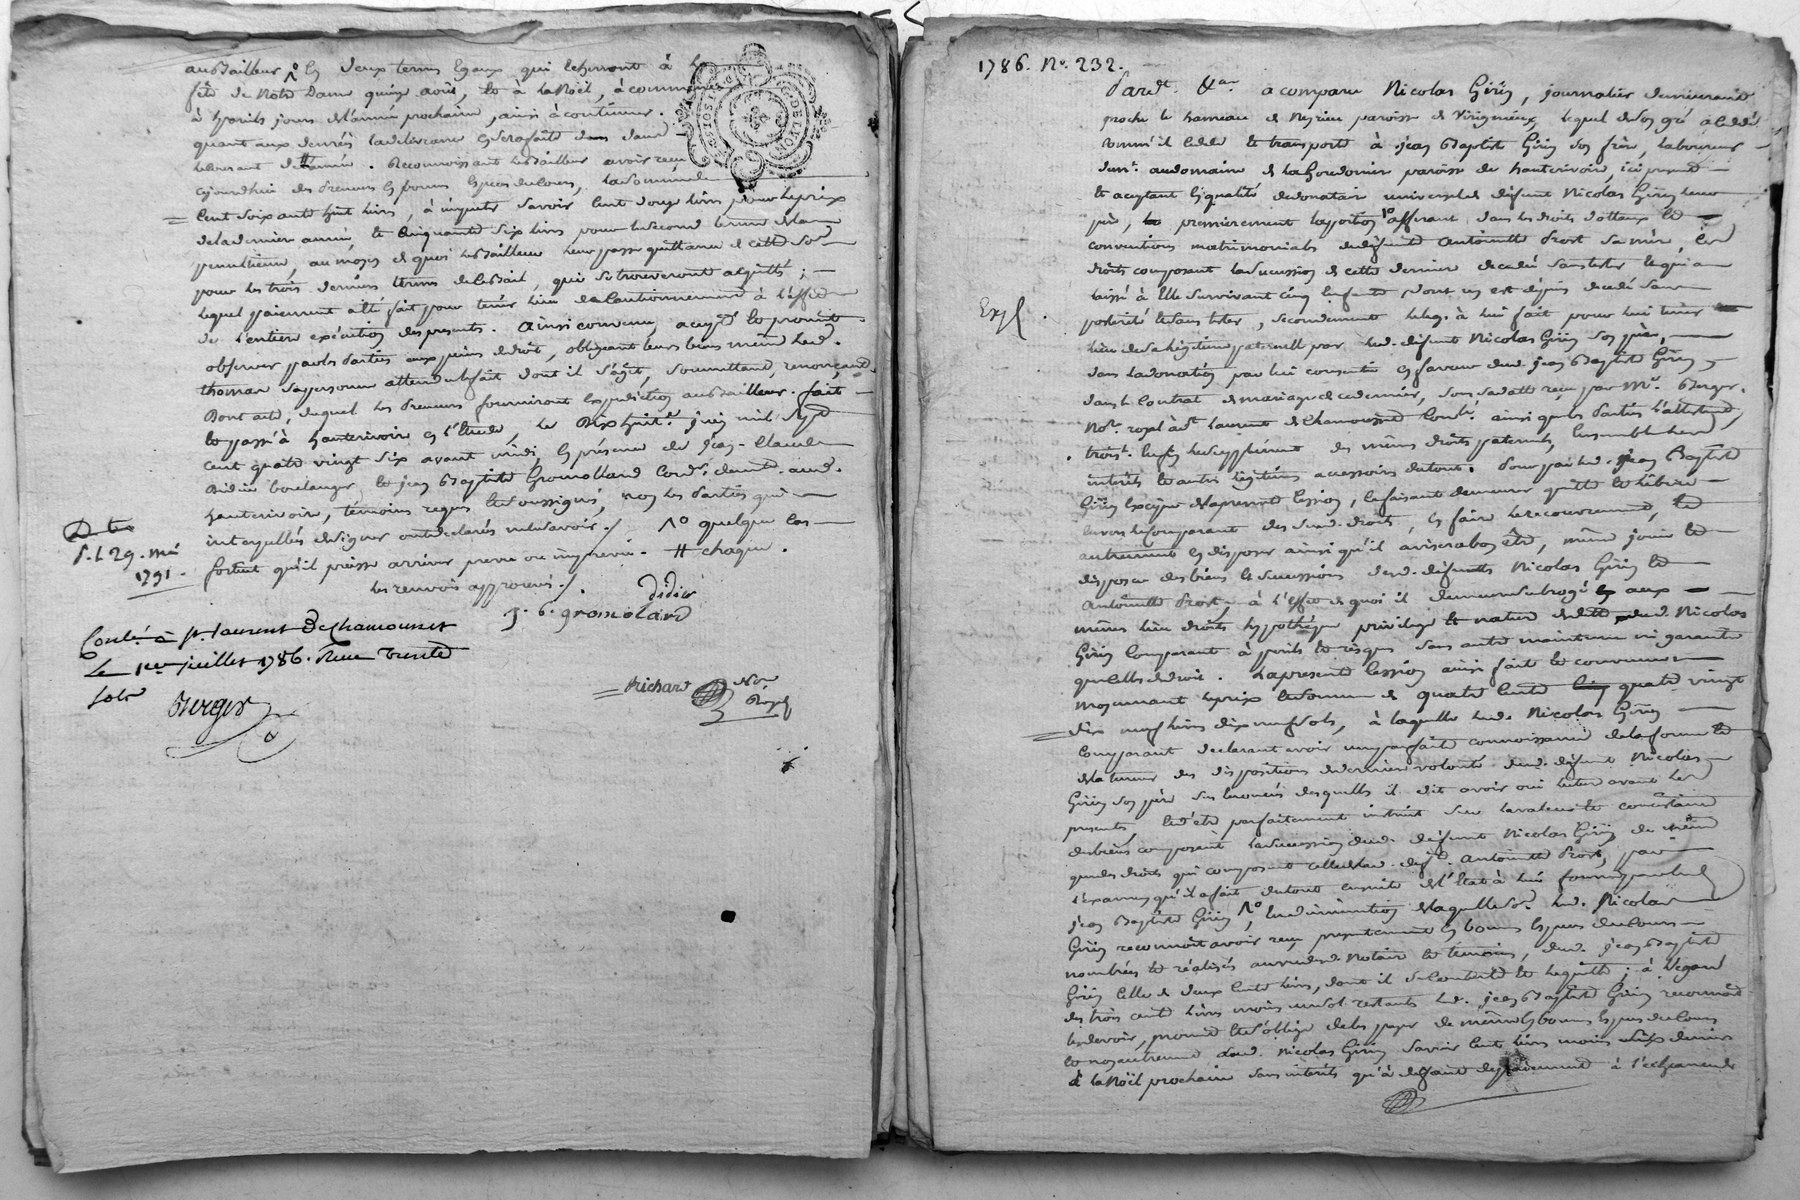 au Bailleur, en deux termes egaux qui echerront à la
fête de Notre Dame quinze aout, et à la Noël, à commencer
à pareils jours de l'année prochaine, ainsi à continuer.
quant aux denrés la delivrance en sera faite dans
le courant de l'année. Reconnoissant le Bailleur avoir reçu
ajourdhui des preneurs en bonnes especes de cours, la somme de
Cent soixante huit livres, à imputer savoir cent douze livres pour le prix
de la derniere année, et Cinquante six livres pour le second terme de la
penultieme, au moyen de quoi le Bailleur leur passe quittance de cette somme
pour les trois derniers termes de ce Bail, qui se trouveront aquittés ;
lequel paiement a été fait pour tenir lieu de Cautionnement à l'effet
de l'entiere exécution des presentes. Ainsi convenu, accepté et promis
observer par les parties aux peines de droit, obligeant leurs biens même led.
thomas sa personne attendu le fait dont il s'agit, soumettant, renonçant
Dont acte, duquel les preneurs fourniront expédition au Bailleur. fait
et passé à hauterivoire en l'Etude, le Dix huit juin mil sept
cent quatre vingt six avant midi, en présence de Jean-Claude
Didier boulanger, et jean Baptiste Gromollard Cord. demt. aud.
hauterivoire, témoins requis et soussignés, non les parties qui
interpellées de signer ont declarés ne le savoir ./. quelque cas
fortuit qu'il puisse arriver prevu ou imprevu. # chaque.
les renvois approuvés ./.
29. mai
1791.
didier
J. B. gromolard
Conlé. à St. Laurent De Chamousset
Le 1er juillet 1786. Reçu trente
sols
Berger
Richard Nore
Royal
1786. No. 232.
Pardt. a comparu Nicolas Girin, journalier demeurant
proche le hameau de Meyrieu paroisse de Virigneux, lequel de son gré a cédé
comm'il cede et transporte à jean Baptiste Girin son frere, laboureur
demt. au domaine de la paroisse de hauterivoire, ici present
et aceptant en qualité de donataire universel de défunt Nicolas Girin leur
pere, premierement la portion afferant dans les droits dotaux et
conventions matrimoniales de défunte antoinette Prost sa mere, et
droits composant la succession de cette derniere decedée sans tester et qui a
laissé à Elle survivant cinq Enfants dont un est depuis decedé sans
posterité et sans tester, secondement le legs à lui fait pour lui tenir
Expé.
lieu de sa légitime paternelle par led. défunt Nicolas Girin son pere,
dans la donation par lui consentie en faveur dud. jean Baptiste Girin
dans le Contrat de mariage de ce dernier, sous sa datte reçu par Me. Berger
Not. royal à St. Laurent de Chamousset Conlé. ainsi que les parties l'attestent,
troist. Enfin le supplément des mêmes droits paternels, Ensemble les
intérêts et autres légitimes accessoires du tout. Pour par led. jean Baptiste
Girin exciper de la presente Cession, le faisant demeurer quitte et libere
envers le Comparant des sud. droits, en faire le recouvrement, et
autrement en disposer ainsi qu'il avisera bon être, même jouir et
disposer des biens et successions desd. défunts Nicolas Girin et
Antoinette Prost, à l'effet de quoi il demeure subrogé aux
mêmes lieu droits hypothèque privilege et nature de dette dud. Nicolas
Girin Comparant à perils et risques sans autre maintenue ni garantie
que celle de droit. La presente Cession ainsi faite et convenue
moyennant le prix et somme de quatre cents quatre vingt
dix neuf livres dix neuf sols, à laquelle led. Nicolas Girin
Comparant declarant avoir une parfaite connoissance de la forme et
de la teneur des dispositions de derniere volonté dud. défunt Nicolas
Girin son pere
presentes, et d'etre parfaitement instruit sur la valeur et consistance
des biens composant la succession dud. défunt Nicolas Girin de même
que des droits qui composent celle de lad. def. antoinette Prost, par
l'examen qu'il a fait du tout ensuite de l'Etat à lui fourni par led.
jean Baptiste Girin, en diminution de laquelle somme led. Nicolas
Girin reconnoit avoir reçu presentement en bonnes Especes de Cours
nombrées et réalisés au vu desd. Notaire et temoins, dud. jean Baptiste
Girin celle de deux Cents livres, dont il se Contente et l'en quitte ; à l'egard
des trois cents livres moins un sol restants led. jean Baptiste Girin reconnoit
les devoir, promet et s'oblige de les payer de même en bonnes Especes de Cours
et non autrement aud. Nicolas Girin savoir Cent livres moins six deniers
à la Noël prochaine sans intérêts qu'à défaut de paiement à l'échéance de